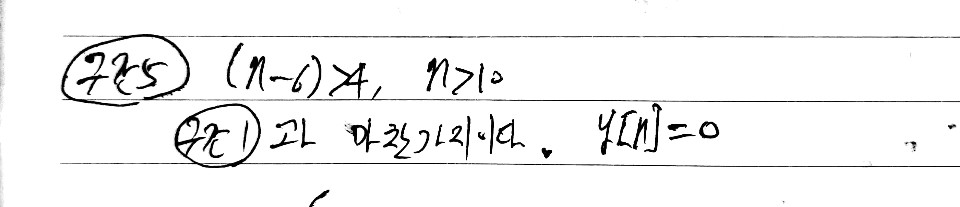 구간5 (n-6)>4, n>10
구간1과 마찬가지이다. y[n]=0